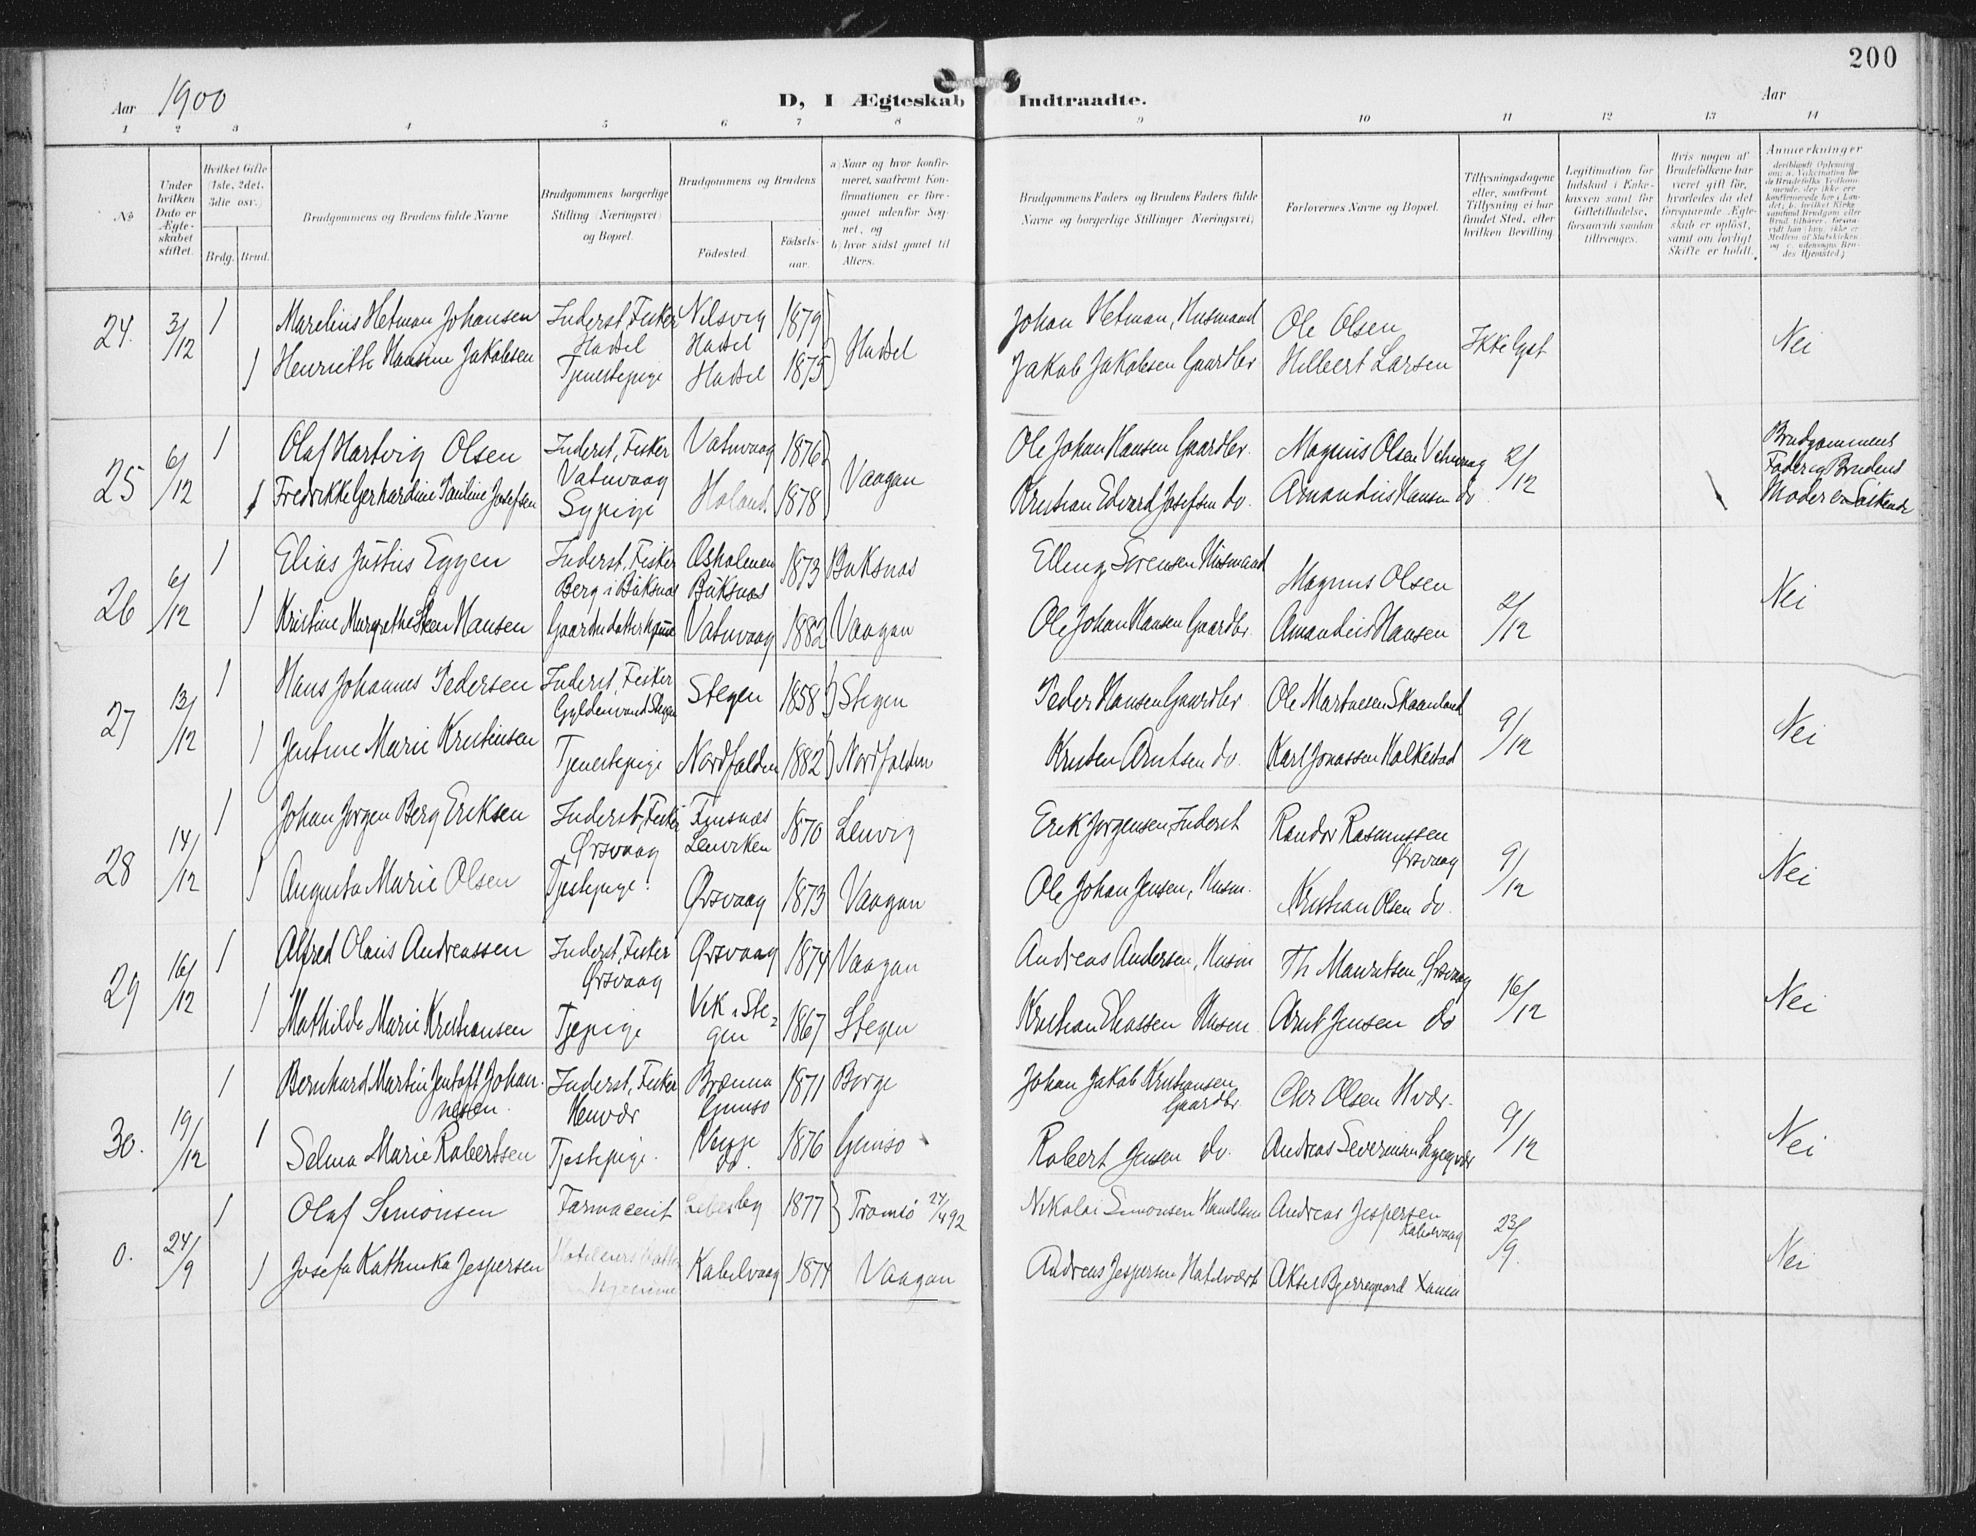 200
Aar 1900
D, I Ægteskab Indtraadte.
Aar
1 2 3 4 5 6 7 8 9 10 11 12 13 14
No
Under hvilken Dato er Ægteskabet stiftet.
Hvilket Gifte (1ste, 2det, 3die osv.)
Brdg. Brud.
Brudgommens og Brudens fulde Navne
Brudgommens borgerlige Stilling (Næringsvei) og Bopæl.
Brudgommens og Brudens
Fødested.
Fødselsaar.
a) Naar og hvor konfirmeret, saafremt Konfirmationen er foregaaet udenfor Sognet, og
b) hvor sidst gaaet til Alters.
Brudgommens Faders og Brudens Faders fulde Navne og borgerlige Stillinger (Næringsvei)
Forlovernes Navne og Bopæl.
Tillysningsdagene eller, saafremt Tillysning ei har fundet Sted, efter hvilken Bevilling.
Legitimation for Indskud i Enkekassen samt for Giftetilladelse, forsaavidt saadan tiltrænges.
Hvis nogen af Brudefolkene har været gift før, hvorledes da det foregaaende Ægteskab er opløst, samt om lovligt Skifte er holdt.
Anmerkninger
24. 3/12 1 Marelius Hetman Johansen Inderst, Fisker Nilsvig 1879 Johan Hetman, Husmand Ole Olsen Ikke lyst Nei
Hadsel Hadsel Hadsel
1 Henriette Hansine Jakobsen Tjenestepige Hadsel 1875 Jakob Jakobsen Gaardbr Hilbert Larsen
25 6/12 1 Olaf Hartvig Olsen Inderst, Fisker Vatnvaag 1876 Vaagan Ole Johan Hansen Gaardbr. Magnus Olsen 2/12 Brudgommens
Vatnvaag Fader og Brudens
1 Fredrikke Gerhardine Pauline Josefsen Sypige Holand 1878 Kristian Edvard Josefsen do. Amandus Hansen do Moder er Søskende
26 6/12 1 Elias Justus Eggen Inderst, Fisker 1873 Buksnæs Elling Sørensen Husmand Magnus Olsen 2/12 Nei
Berg i Buksnæs Buksnæs
1 Kristine Margrethe Steen Hansen Vatnvaag 1882 Vaagan Ole Johan Hansen Gaardbr. Amandus Hansen
27 13/12 1 Hans Johannes Pedersen Inderst, Fisker Stegen 1858 Stegen Peder Hansen Gaardbr Ole Skaanland 9/12 Nei
Stegen
1 Jentine Marie Kristensen Tjenestepige Nordfolden 1882 Nordfolden Kristen Arntsen do. Karl Jonassen
28 14/12 1 Johan Jørgen Berg Eriksen Inderst, Fisker Finsnæs 1870 Lenvig Erik Jørgensen, Inderst Randor Rasmussen 9/12 Nei
Ørsvaag Lenviken Ørsvaag
1 Augusta Marie Olsen Tjestepige. Ørsvaag 1873 Vaagan Ole Johan Jensen, Husm. Kristian Olsen do.
29 16/12 1 Alfred Olaus Andreassen Inderst, Fisker Ørsvaag 1874 Vaagan Andreas Andersen, Husm Th Mauritsen, Ørsvaag 16/12 Nei
Ørsvaag
1 Mathilde Marie Kristiansen Tjepige Vik i Ste- 1867 Stegen Kristian Eliassen Husm. Arnt Jensen do
gen
30. 19/12 1 Bernhard Martin Jentoft Johan- Inderst, Fisker Brænna 1871 Borge Johan Jakob Kristiansen Chr Olsen Hvær. 9/12 Nei
nesen. Henvær Gimsø Gaardbr.
1 Selma Marie Robertsen Tjestepige. 1876 Gimsø Robert Jensen do. Andreas Severinsen
do.
0. 24/9 1 Olaf Simonsen Farmaceut Lebesby 1877 Tromsø 24/4 92 Nikolai Simonsen Andreas Jespersen 23/9. Nei
Kabelvaag
1 Josefa Kathinka Jespersen Kabelvaag 1874 Vaagan Andreas Jespersen Hotelvært Aksel Bjerregaard